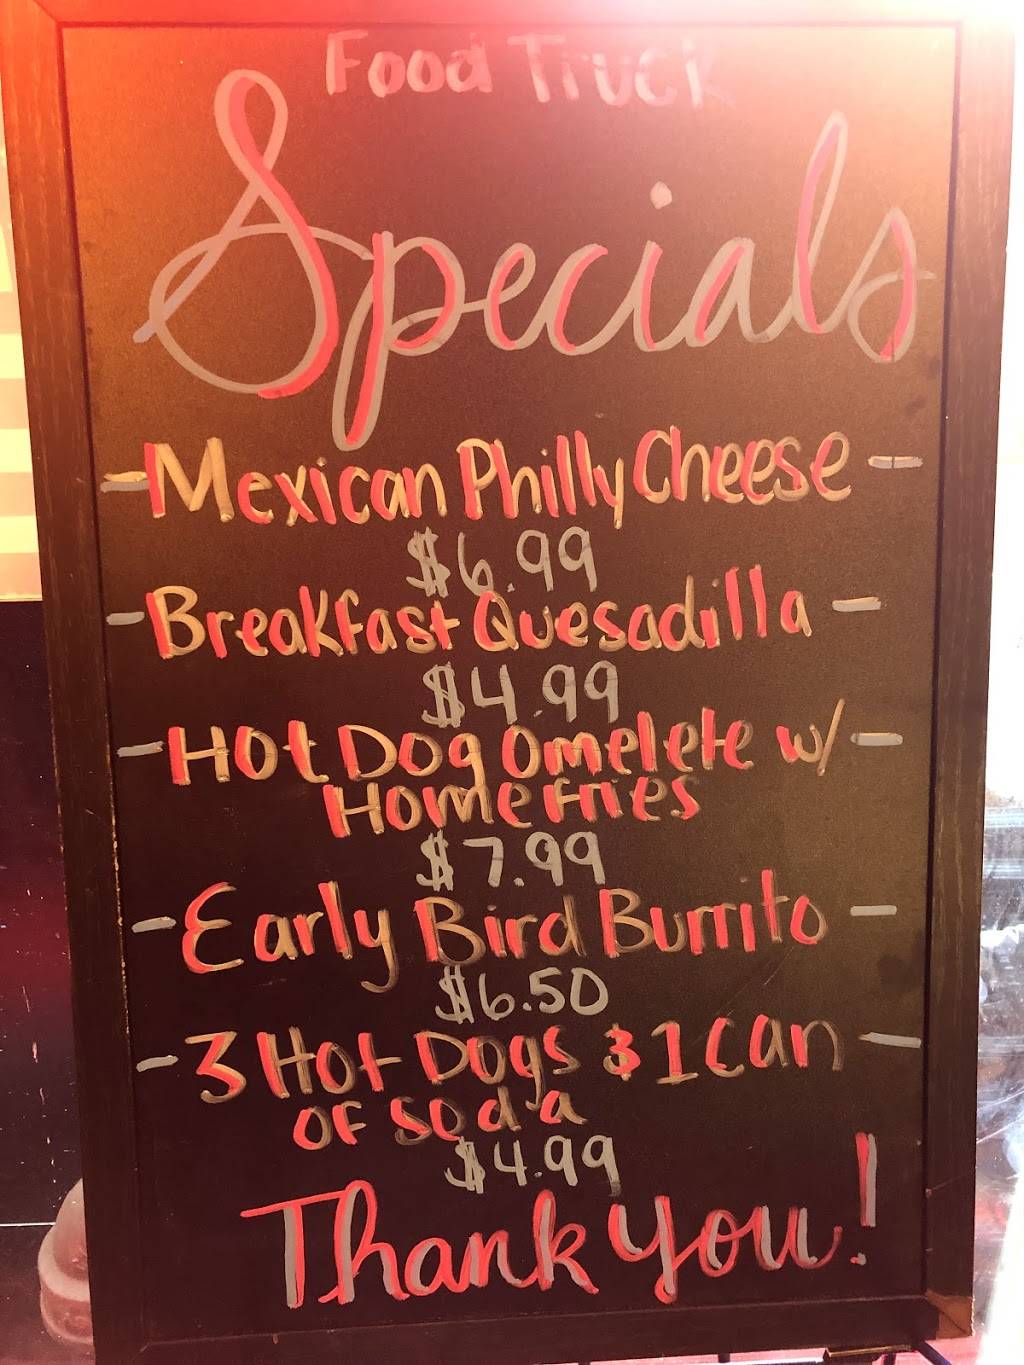 Food Truck
Specials
- Mexican Philly Cheese -
$6.99
- Breakfast Quesadilla -
$4.99
- Hot Dog Omelete w/ -
Home Fries
$7.99
- Early Bird Burrito -
$6.50
- 3 Hot Dogs & 1 Can -
of soda
$4.99
Thank you!